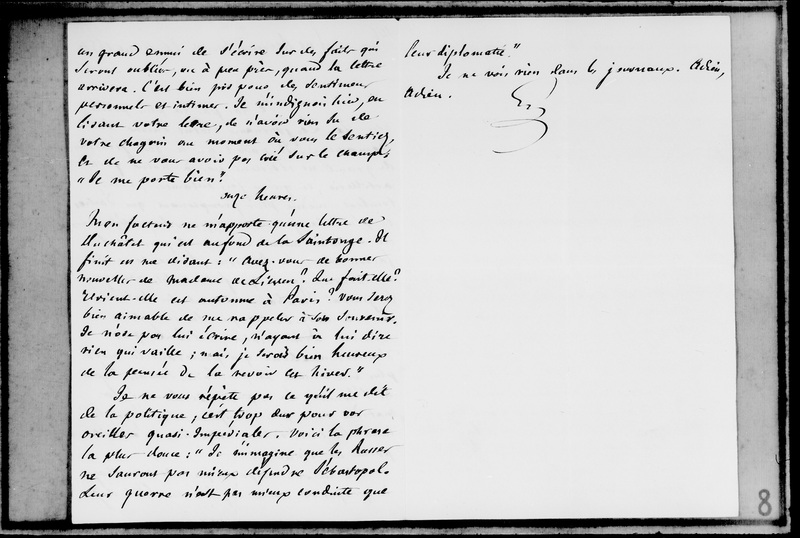 un grand ennui de s'écrire sur des faits qui
seront oubliés, ou à peu près, quand la lettre
arrivera. C'est bien pis pour des sentimens
personnels et intimes. Je m'indignois hier, en
lisant votre lettre, de n'avoir rien su de
votre chagrin au moment où vous le sentiez,
et de ne vous avoir pas crié sur le champ:
"Je me porte bien."
onze heures.
Mon facteur ne m'apporte qu'une lettre de
Duchâtel qui est au fond de la Saintonge. Il
finit en me disant: "Avez-vous de bonnes
nouvelles de Madame de Lieven? Que fait-elle?
Revient-elle cet automne à Paris? Vous serez
bien aimable de me rappeler à son souvenir.
Je n'ose pas lui écrire, n'ayant à lui dire
rien qui vaille; mais je serois bien heureux
de la pensée de la revoir cet hiver."
Je ne vous répète pas ce qu'il me dit
de la politique, c'est trop dur pour vos
oreilles quasi-Impériales. Voici la phrase
la plus douce: "Je m'imagine que les Russes
ne sauront pas mieux défendre Sébastopol.
Leur guerre n'est pas mieux conduite que
leur diplomatie."
Je ne vois rien dans les journaux. Adieu,
Adieu.
8